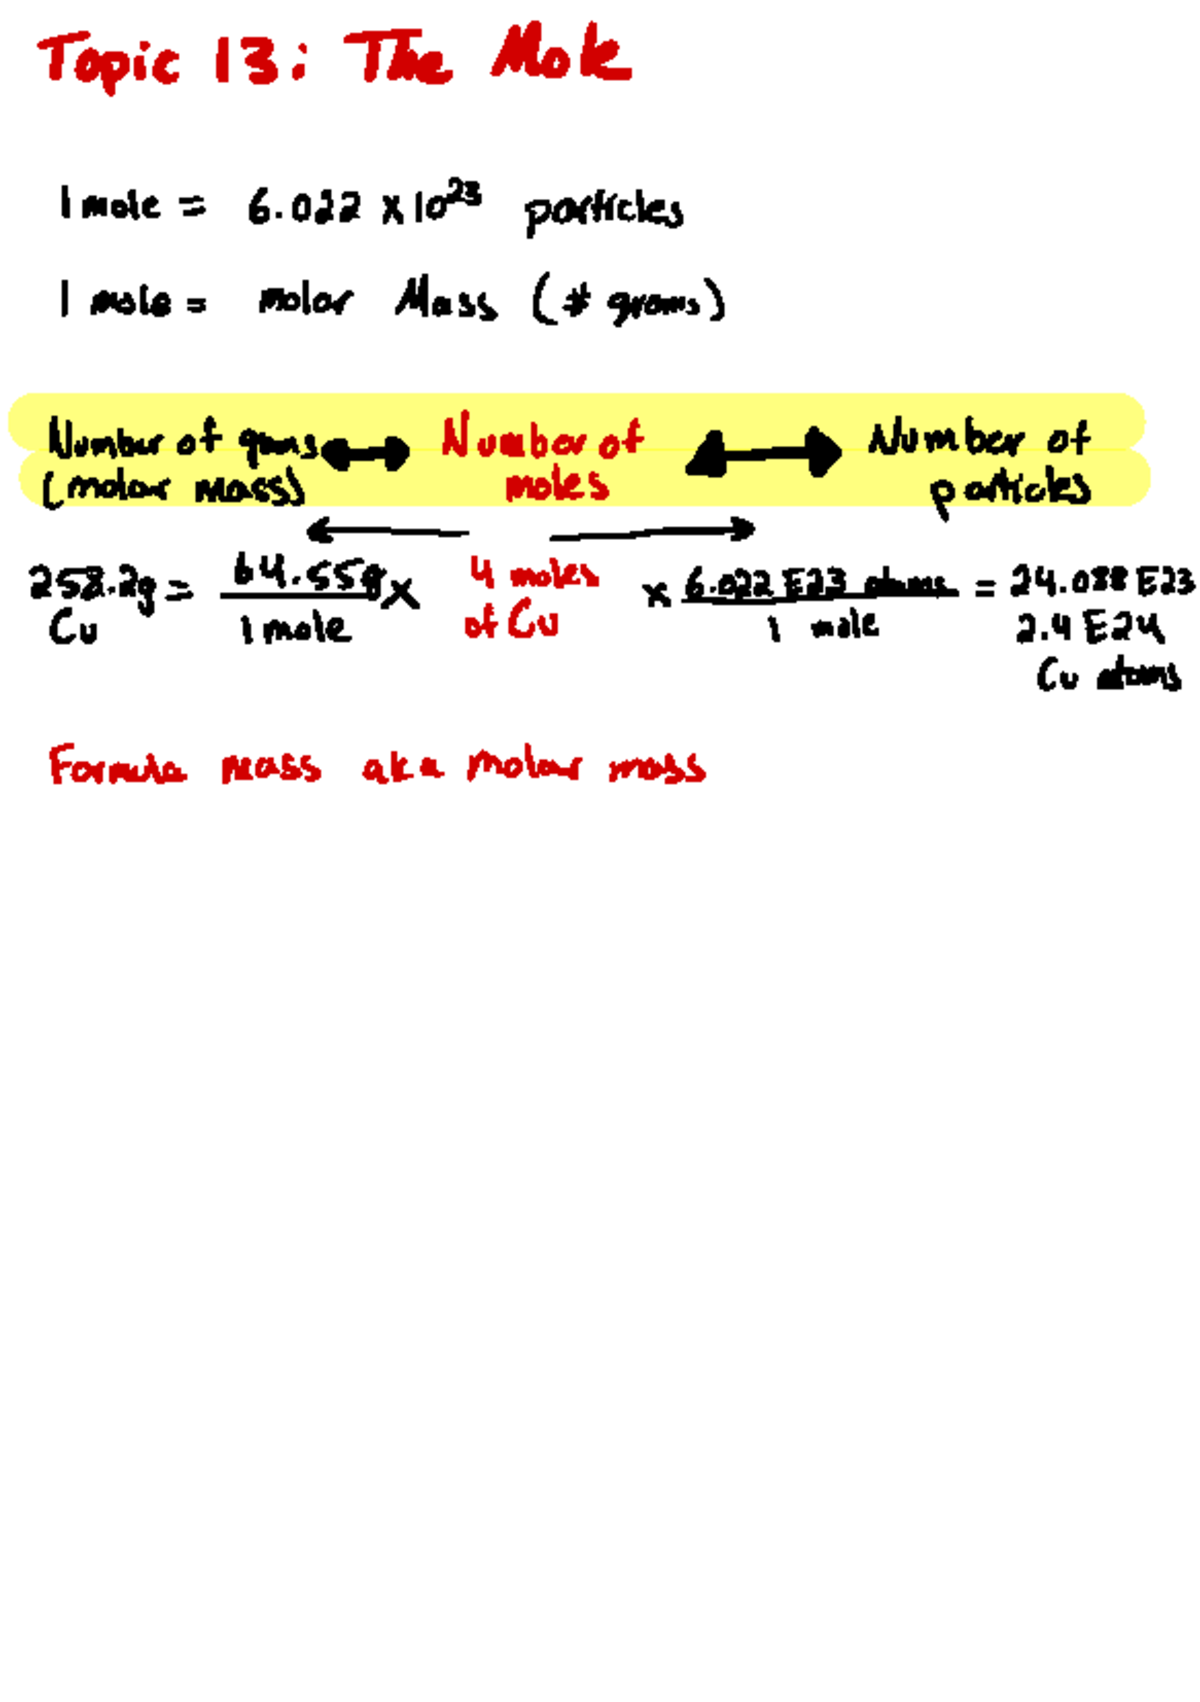 Topic 13: The Mole
1 mole = 6.022 x 10²³ particles
1 mole = molar Mass (# grams)
Number of grams ↔ Number of ↔ Number of
(molar mass) moles particles
258.2g = 64.55g x 4 moles x 6.022 E23 atoms = 24.088 E23
Cu 1 mole of Cu 1 mole 2.4 E24
Cu atoms
Formula mass aka molar mass